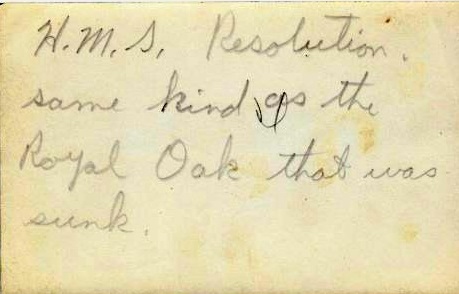 H.M.S. Resolution.
same kind as the
Royal Oak that was
sunk.